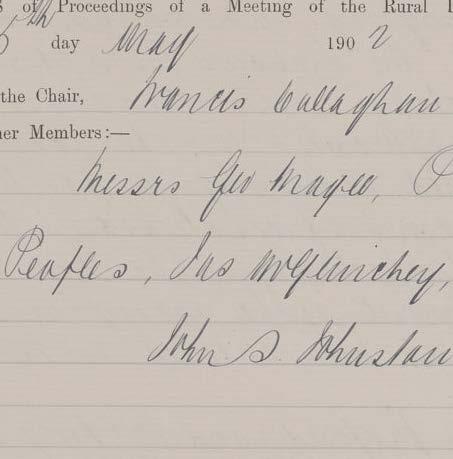 of Proceedings of a Meeting of the Rural
th day May 1902
the Chair, Francis Callaghan
Members:—
Messrs Geo Magee,
Peoples, Jas McGlinchey,
John S. Johnston